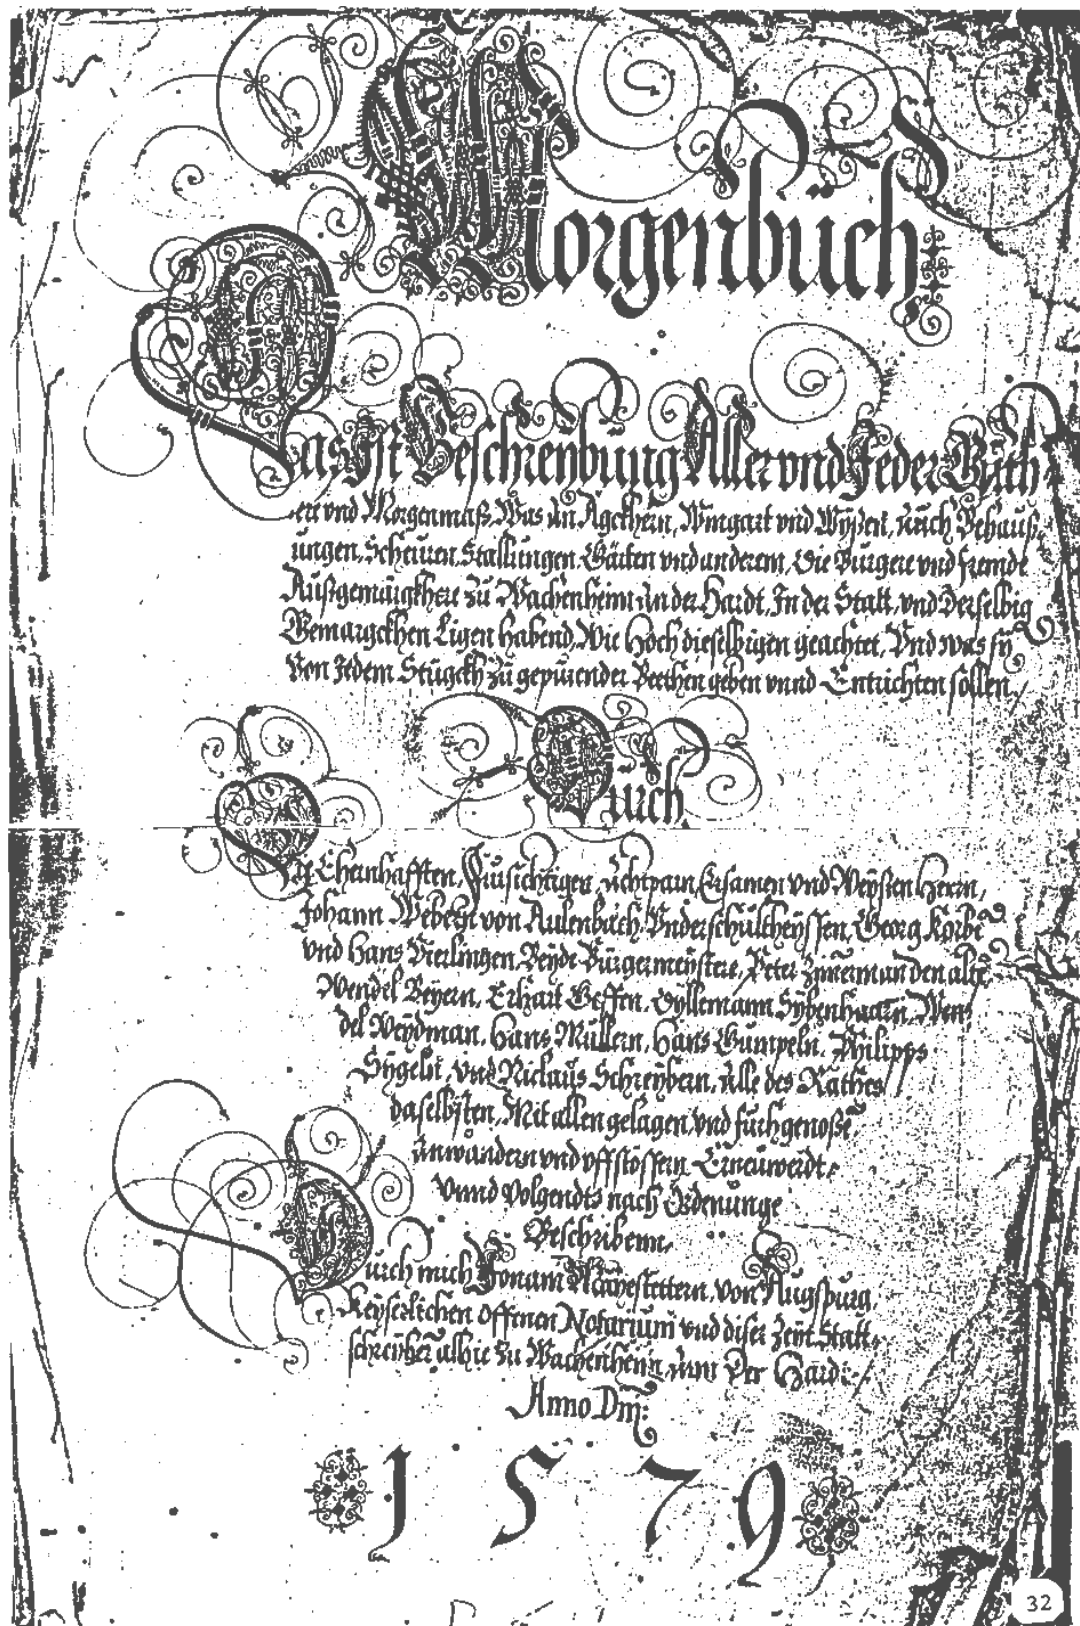 Morgenbuch
Das Ist Beschreybung Aller vnd Jeder Güth
ere vnd Morgenmaß, Was an Ägckhern, Wingart vnd Wyßen, Auch Behauß,
ungen, Scheuren, Stallungen, Gärten vnd anderem, Die Burgere vnd fremde
Außgemärgkhere zu Wachenheim an der Hardt, In der Statt, vnd Derselbig
Gemargckhen Eigen habend, Wie Hoch dieselbigen geachtet, Vnd was sy
Von Jedem Stügckh zu gepürender Beethen geben vnnd Entrichten sollen.
Durch
Die Ehernhafften, Fürsichtigen, Ersamen vnd Weysen Herrn,
Johann Webern von Aulenbach, Vnderschultheyssen, Georg Körbe
vnd Hans Vierlingen, Beyde Bürgermeystere, Peter Zimerman den alte
Wendel Beyern, Erhart Dyllemann Sybenhaarn, Wen
del Weydman, Hans Müllern, Hans Gümpeln, Philipps
Sygeln, vnd Niclaus Schreybern, Alle des Rathes
daselbsten, Mit allen gelägen, vnd fürchgenoße
Anwandern vnd vffstössern, Erneuwerdt,
Vnnd Volgendts nach Ordenunge
Beschribenn,
Durch mich Jonam von Augspurg,
Keyserlichen offenen Notarium vnd diser Zeyt Statt-
schreyber alhie zu Wachenheim ann Der Hard
Anno Dnj:
1579
32